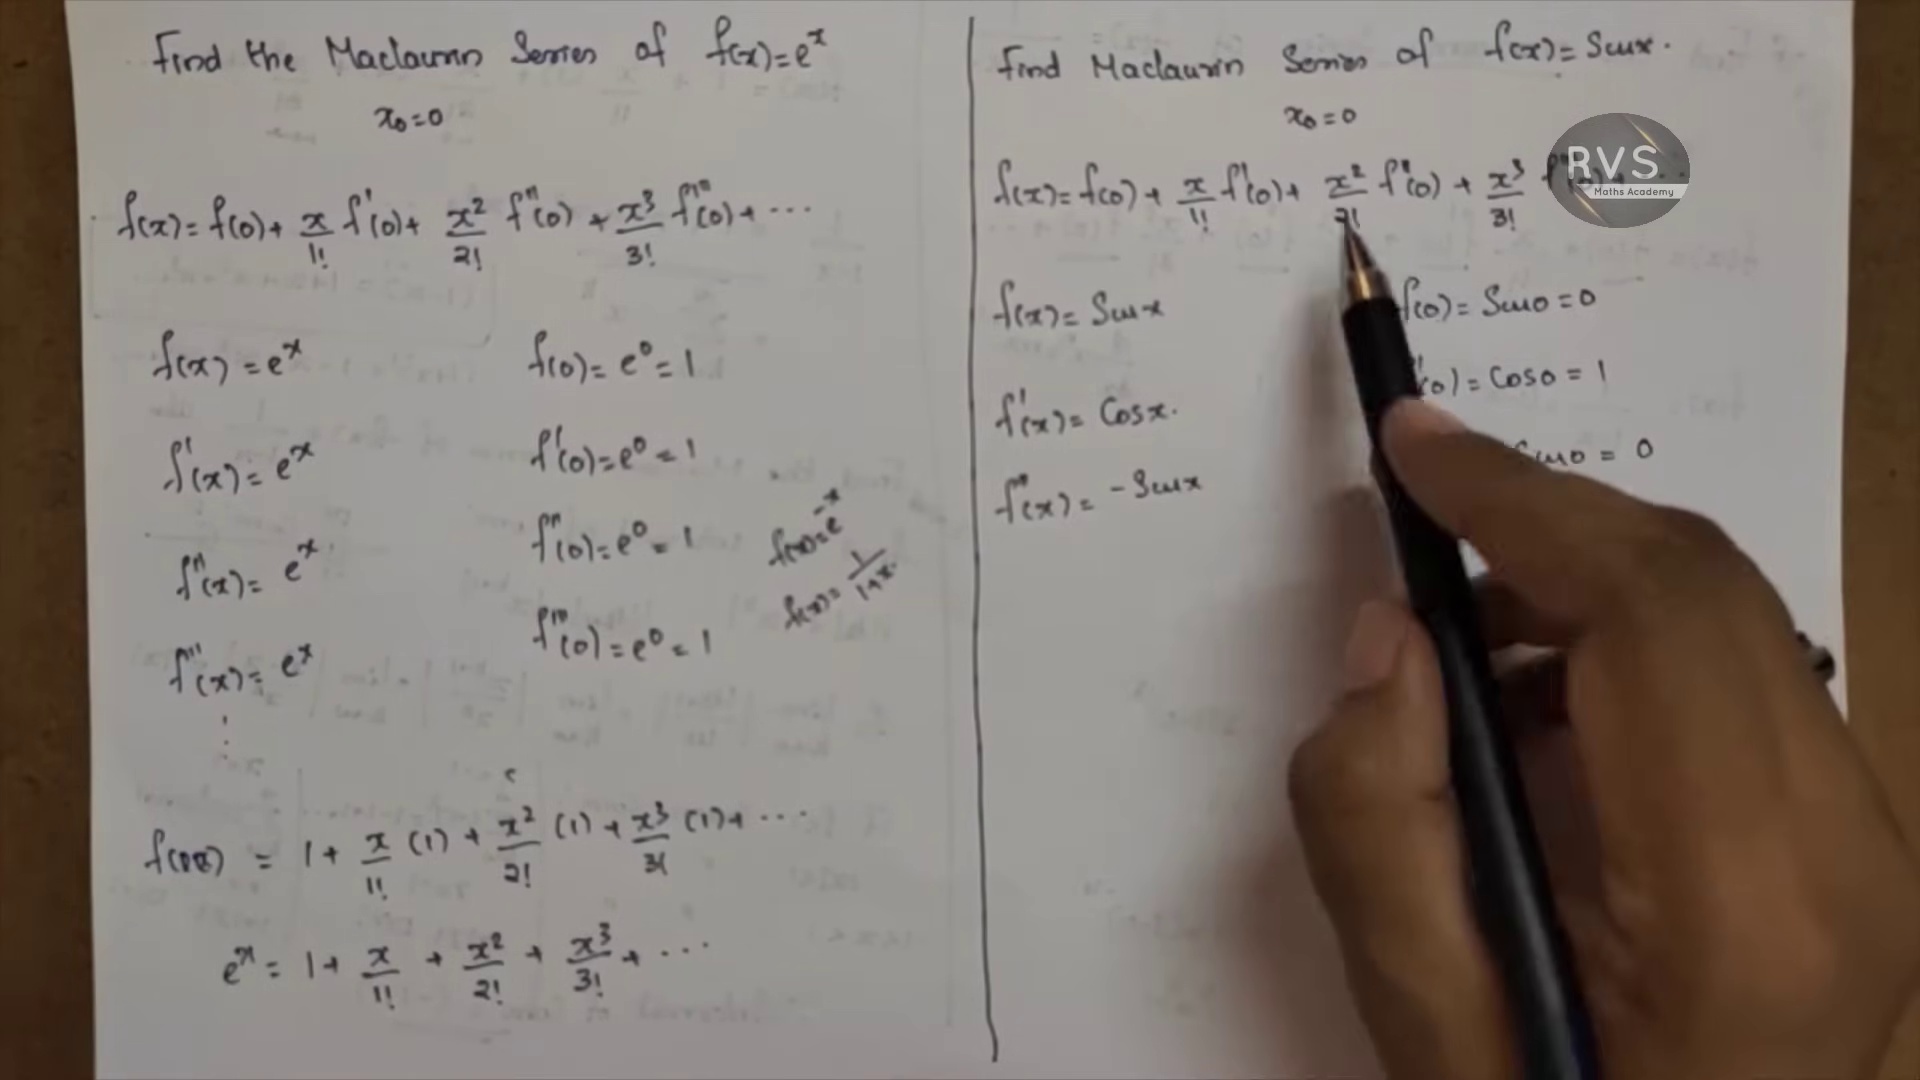 Find the Maclaurin Series of f(x)=eˣ
x₀=0
f(x)= f(0)+ x/1! f'(0)+ x²/2! f''(0) + x³/3! f'''(0)+ ...
f(x) = eˣ f(0)= e⁰ = 1
f'(x)= eˣ f'(0)=e⁰ = 1
f''(x)= eˣ f''(0)=e⁰ = 1
f'''(x)= eˣ f'''(0)=e⁰ = 1
f(x)=e⁻ˣ
f(x)= 1/1+x.
= 1+ x/1! (1) + x²/2! (1) + x³/3! (1)+ ...
eˣ = 1+ x/1! + x²/2! + x³/3! + ...
Find Maclaurin Series of f(x)= Sinx.
x₀=0
f(x)= f(0)+ x/1! f'(0)+ x²/2! f''(0) + x³/3!
f(x)= Sinx f(0)= Sin0 =0
f'(x)= Cosx. '(0)= Cos0 = 1
f''(x)= -Sinx Sin0 = 0
RVS
Maths Academy